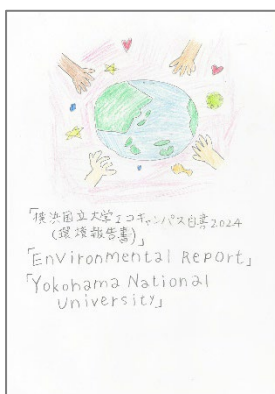 「横浜国立大学エコキャンパス白書2024
(環境報告書)」
「Environmental Report」
「Yokohama National
University」